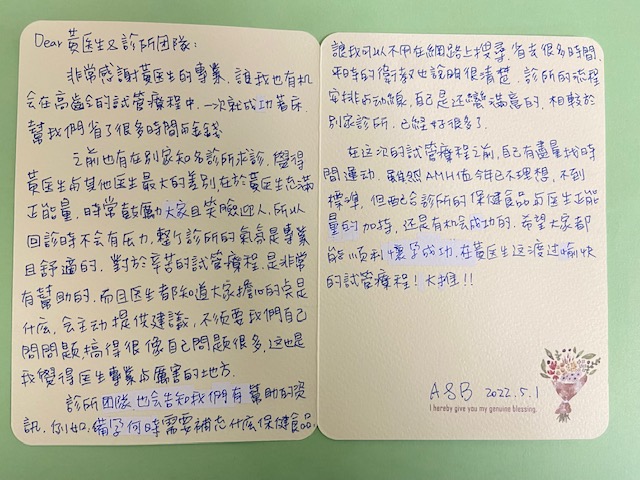 Dear 黃医生&診所团隊:
非常感謝黃医生的專業,讓我也有机
会在高齡的試管療程中,一次就成功著床,
幫我們省了很多時間与金錢.
之前也有在別家知名診所求診,覺得
黃医生与其他医生最大的差別在於黃医生充滿
正能量,時常鼓厲大家且笑臉迎人,所以
回診時不会有压力,整个診所的氣氛是專業
且舒適的,對於辛苦的試管療程,是非常
有幫助的,而且医生都知道大家擔心的点是
什庅,会主动提供建議,不須要我們自己
問問題搞得很像自己問題很多,這也是
我覺得医生專業与厲害的地方.
診所团隊也会告知我們有幫助的資
訊,例如,備孕何時需要補充什庅保健食品,
讓我可以不用在網路上搜尋,省去很多時間,
平時的衛教也說明很清楚,診所的流程
安排与动線,自己是还蠻滿意的,相較於
別家診所,已經好很多了.
在這次的試管療程之前,自己有盡量找時
間運动,雖然AMH值今年已不理想,不到
標準,但配合診所的保健食品与医生正能
量的加持,还是有机会成功的,希望大家都
能順利懷孕成功,在黃医生这渡过愉快
的試管療程!大推!!
A&B 2022.5.1
I hereby give you my genuine blessing.